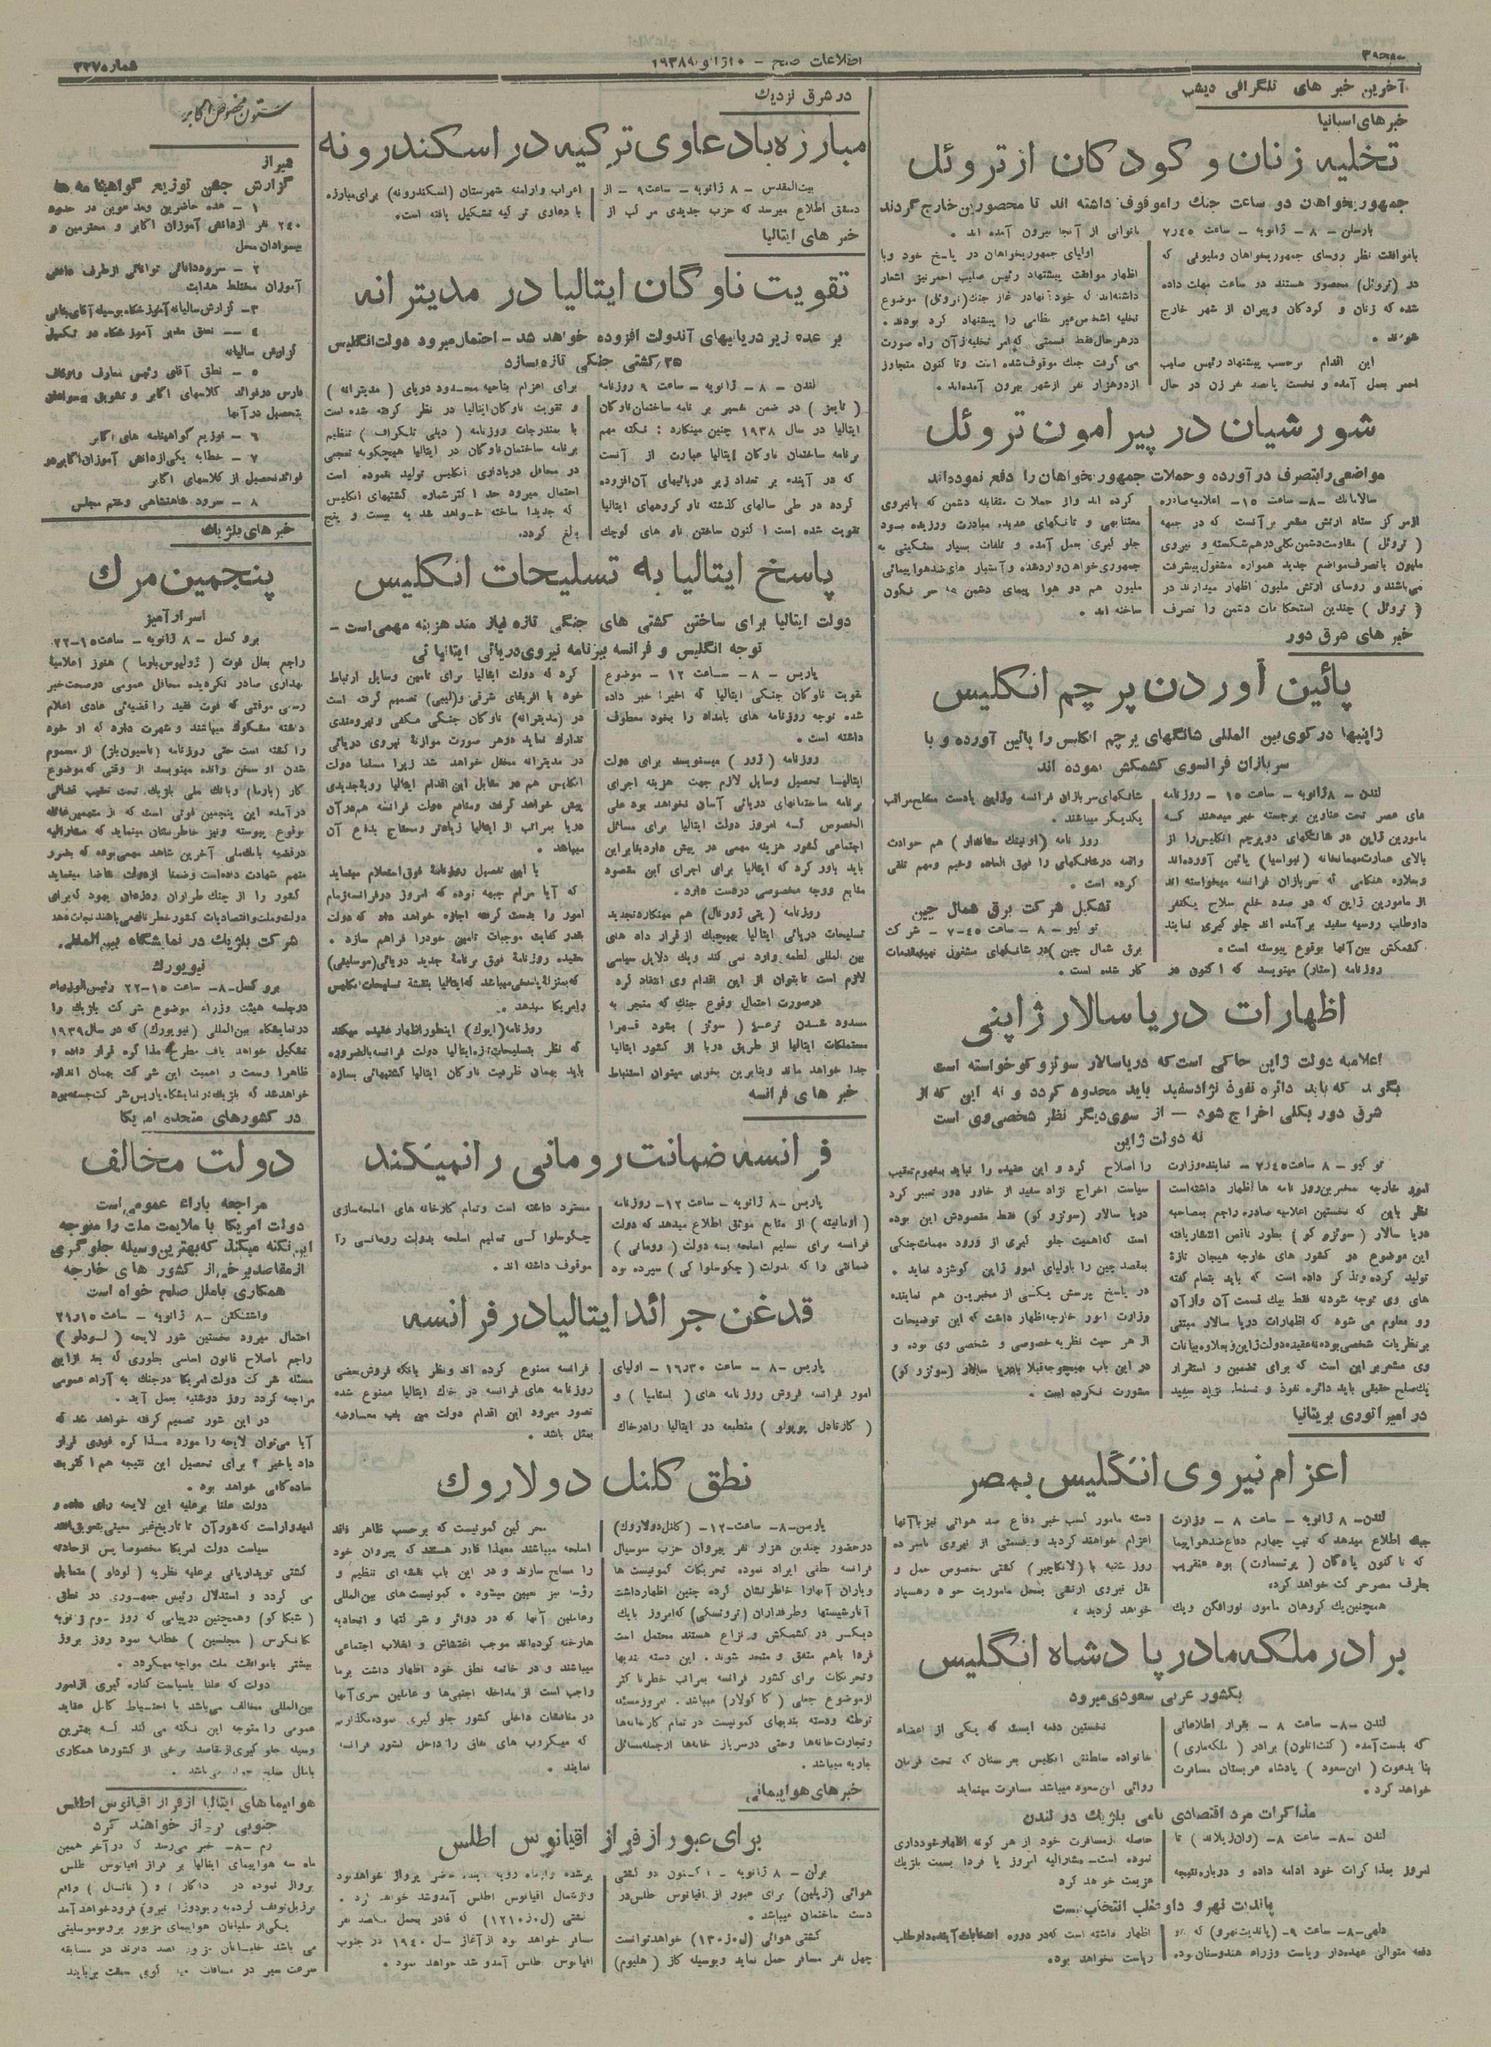 شماره ۳۳۷۵
اطلاعات صبح - ۱۰ ژانویه ۱۹۳۸
صفحه ۳
آخرین خبر های تلگرافی دیشب
خبرهای اسپانیا
تخلیه زنان و کودکان از تروئل
جمهوریخواهان دو ساعت جنگ را موقوف داشته اند تا محصورین خارج گردند
باموافقت نظر روسای جمهوریخواهان وملیونی که
در (تروئل) محصور هستند دو ساعت مهلت داده
شده که زنان و کودکان و پیران از شهر خارج
شوند .
این اقدام برحسب پیشنهاد رئیس صلیب
احمر بعمل آمده و نخست پانصد نفر زن در حال
ناتوانی از آنجا بیرون آمده اند .
اولیای جمهوریخواهان در پاسخ خود وبا
اظهار موافقت پیشنهاد رئیس صلیب احمر نیز اشعار
تخلیه اشخاص غیر نظامی را پیشنهاد کرد بودند .
درهرحال فقط قسمتی که امر تخلیه از آن راه صورت
می گرفت جنگ موقوف شده است وتا کنون متجاوز
ازدوهزار نفر ازشهر بیرون آمده اند .
شورشیان در پیرامون تروئل
مواضعی را بتصرف در آورده و حملات جمهوریخواهان را دفع نموده اند
سالامانک -۸- ساعت ۱۵- اعلامیه صادره
ازمرکز ستاد ارتش مشعر برآنست که در جبهه
( تروئل ) مقاومت دشمن بکلی درهم شکسته و نیروی
ملیون باتصرف مواضع جدید همواره مشغول پیشرفت
می باشند و روسای ارتش ملیون اظهار میدارند در
( تروئل ) چندین استحکامات دشمن را تصرف
کرده اند واز حملات متقابله دشمن که بانیروی
معتنابهی و تانکهای عدیده مبادرت ورزیده بود
جلو گیری بعمل آمده و تلفات بسیار سنگینی به
جمهوری خواهان وارد شده و آتشبار های ضدهواپیمائی
ملیون هم دو هوا پیمای دشمن را سر نگون
ساخته اند .
خبر های شرق دور
پائین آوردن پرچم انگلیس
ژاپنیها در کوی بین المللی شانگهای پرچم انگلیس را پائین آورده و با
سربازان فرانسوی کشمکش نموده اند
لندن - ۸ ژانویه - ساعت ۱۵ - روزنامه
های عصر تحت عناوین برجسته خبر میدهند که
مامورین ژاپن در شانگهای دو پرچم انگلیس را از
بالای عمارت مهمانخانه (نیواسیا) پائین آورده اند
وبعلاوه هنگامی که سربازان فرانسه میخواسته اند
از مامورین ژاپن که در صدد خلع سلاح یکنفر
داوطلب روسیه سفید برآمده اند جلو گیری نمایند
کشمکش بین آنها بوقوع پیوسته است .
روزنامه (ستار) مینویسد که اکنون در
شانگهای سربازان فرانسه وژاپن بادست مسلح مراقب
یکدیگر میباشند .
روز نامه (اونینگ ستاندار) هم حوادث
واقعه درشانگهای را فوق العاده وخیم ومهم تلقی
کرده است .
تشکیل شرکت برق شمال چین
تو کیو - ۸ - ساعت ۴۵-۷ - شرکت
برق شمال چین در شانگهای مشغول تهیه مقدمات
کار شده است .
اظهارات دریا سالار ژاپنی
اعلامیه دولت ژاپن حاکی است که دریا سالار سوتزو کو خواسته است
بگوید که باید دائره نفوذ نژاد سفید باید محدود گردد و نه این که از
شرق دور بکلی اخراج شود — از سوی دیگر نظر شخصی وی است
نه دولت ژاپن
تو کیو - ۸ ساعت ۷٫۴۵ - نماینده وزارت
امور خارجه مخبرین روز نامه ها اظهار داشته است
نظر باین که نخستین اعلامیه صادره راجع بمصاحبه
دریا سالار (سوتزو کو) بطور ناقص انتشار یافته
این موضوع در کشور های خارجه هیجان تازه
تولید کرده وتذکر داده است که باید بتمام گفته
های وی توجه شود نه فقط بیک قسمت آن واز آن
رو معلوم می شود که اظهارات دریا سالار مبتنی
بر نظریات شخصی بوده نه عقیده دولت ژاپن وبعلاوه بیانات
وی مشعر براین است که برای تضمین و استقرار
یک صلح حقیقی باید دائره نفوذ و تسلط نژاد سفید
را اصلاح کرد و این عقیده را نباید بمفهوم تعقیب
سیاست اخراج نژاد سفید از خاور دور تعبیر کرد
دریا سالار (سوتزو کو) فقط مقصودش این بوده
است که اهمیت جلو گیری از ورود مهمات جنگی
بمقصد چین را باولیای امور ژاپن گوشزد نماید .
در پاسخ پرسش یکی از مخبرین هم نماینده
وزارت امور خارجه اظهار داشت که این توضیحات
از هر حیث نظریه خصوصی و شخصی وی بوده و
در این باب بهیچوجه قبلا با دریا سالار (سوتزو کو)
مشورت نکرده است .
در امپراتوری بریتانیا
اعزام نیروی انگلیس بمصر
لندن- ۸ ژانویه - ساعت ۸ - وزارت
جنگ اطلاع میدهد که تیپ چهارم دفاع ضد هواپیما
که تا کنون پادگان ( پرتسمات) بود عنقریب
بطرف مصر حرکت خواهد کرد .
همچنین یک گروهان مامور نورافکن ویک
دسته مامور کسب خبر دفاع ضد هوائی نیز با آنها
اعزام خواهند گردید وقسمتی از نیروی نامبرده
روز شنبه با (لانکاچیر) کشتی مخصوص حمل و
نقل نیروی ارتشی بمحل ماموریت خود رهسپار
خواهد گردید .
برادر ملکه مادر پادشاه انگلیس
بکشور عربی سعودی میرود
لندن -۸- ساعت ۸ - بقرار اطلاعاتی
که بدست آمده (کنت اتلون) برادر ( ملکه ماری )
بنا بدعوت ( ابن سعود ) پادشاه عربستان مسافرت
خواهد کرد .
نخستین دفعه ایست که یکی از اعضاء
خانواده سلطنتی انگلیس بعربستان که تحت فرمان
روائی ابن سعود میباشد مسافرت مینماید
مذاکرات مرد اقتصادی نامی بلژیک در لندن
لندن -۸- ساعت ۸- (وان زیلاند) تا
امروز بمذاکرات خود ادامه داده و درباره نتیجه
حاصله از مسافرت خود از هر گونه اظهار خودداری
نموده است- مشارالیه امروز یا فردا بسمت بلژیک
عزیمت خواهد کرد
پاندیت نهرو داوطلب انتخاب نیست
دهلی -۸- ساعت ۹- (پاندیت نهرو) که دو
دفعه متوالی عهده دار ریاست وزراء هندوستان بوده
اظهار داشته است که در دوره انتخابات آینده داوطلب
ریاست نخواهد بود .
در شرق نزدیک
مبارزه با دعاوی ترکیه در اسکندرونه
بیت المقدس - ۸ ژانویه - ساعت ۹ - از
دمشق اطلاع میرسد که حزب جدیدی مرکب از
اعراب وارامنه شهرستان (اسکندرونه) برای مبارزه
با دعاوی ترکیه تشکیل یافته است .
خبر های ایتالیا
تقویت ناوگان ایتالیا در مدیترانه
بر عده زیر دریائیهای آندولت افزوده خواهد شد - احتمال میرود دولت انگلیس
۲۵ کشتی جنگی تازه بسازد
لندن - ۸ - ژانویه - ساعت ۹ روزنامه
( تایمز ) در ضمن تفسیر بر نامه ساختمان ناوگان
ایتالیا در سال ۱۹۳۸ چنین مینگارد : نکته مهم
برنامه ساختمان ناوگان ایتالیا عبارت از آنست
که در آینده بر تعداد زیر دریائیهای آن افزوده
گردد در طی سالهای گذشته ناو گروههای ایتالیا
تقویت شده است اکنون ساختن ناو های کوچک
برای اعزام بناحیه محدود دریای ( مدیترانه )
و تقویت ناوگان ایتالیا در نظر گرفته شده است
با مندرجات روزنامه ( دیلی تلگراف ) تنظیم
برنامه ساختمان ناوگان در ایتالیا هیچگونه تعجبی
در محافل دریاداری انگلیس تولید ننموده است
احتمال میرود حد اکثر شماره کشتیهای انگلیس
که جدیدا ساخته خواهد شد به بیست و پنج
بالغ گردد.
پاسخ ایتالیا به تسلیحات انگلیس
دولت ایتالیا برای ساختن کشتی های جنگی تازه نیاز مند هزینه مهمی است -
توجه انگلیس و فرانسه ببرنامه نیروی دریائی ایتالیائی
پاریس - ۸ - ساعت ۱۲ - موضوع
تقویت ناوگان جنگی ایتالیا که اخیرا خبر داده
شده توجه روزنامه های بامداد را بخود معطوف
داشته است .
روزنامه ( ژور ) مینویسد برای دولت
ایتالیا تحصیل وسایل لازم جهت هزینه اجرای
برنامه ساختمانهای دریائی آسان نخواهد بود علی
الخصوص که امروز دولت ایتالیا برای مسائل
اجتماعی کشور هزینه مهمی در پیش دارد بنابراین
باید باور کرد که ایتالیا برای اجرای این مقصود
منابع ووجه مخصوصی در دست دارد .
روزنامه (پتی ژورنال) هم مینگارد تجدید
تسلیحات دریائی ایتالیا بهیچیک از قرار داد های
بین المللی لطمه وارد نمی کند ویک دلایل سیاسی
لازم است تا بتوان از این اقدام وی انتقاد کرد
درصورت احتمال وقوع جنگ که منجر به
مسدود شدن ترعه ( سوئز ) بشود قهرا
مستملکات ایتالیا از طریق دریا از کشور ایتالیا
جدا خواهد ماند وبنابراین بخوبی میتوان استنباط
کرد که دولت ایتالیا برای تامین وسایل ارتباط
خود با افریقای شرقی و(لیبی) تصمیم گرفته است
در (مدیترانه) ناوگان جنگی مکفی ونیرومندی
تدارک نماید درهر صورت موازنه نیروی دریائی
در مدیترانه مختل خواهد شد زیرا مسلما دولت
انگلیس هم در مقابل این اقدام ایتالیا رویه جدیدی
پیش خواهد گرفت ومنافع دولت فرانسه هم در آن
دریا بمراتب از ایتالیا زیادتر ومحتاج بدفاع آن
میباشد .
با این تفصیل روزنامه فوق استعلام مینماید
که آیا مرام جبهه توده که امروز در فرانسه زمام
امور را بدست گرفته اجازه خواهد داد که دولت
بقدر کفایت موجبات تامین خود را فراهم سازد .
بعقیده روزنامه فوق برنامه جدید دریائی (موسولینی)
که بمنزله پاسخی میباشد که ایتالیا بنقشه تسلیحات انگلیس
وامریکا میدهد .
روزنامه (اپوک) اینطور اظهار عقیده میکند
که نظر بتسلیحات تازه ایتالیا دولت فرانسه بالضروره
باید بهمان ظرفیت ناوگان ایتالیا کشتیهائی بسازد
خبر های فرانسه
فرانسه ضمانت رومانی را نمیکند
پاریس -۸ ژانویه - ساعت ۱۲- روزنامه
( اومانیته ) از منابع موثق اطلاع میدهد که دولت
فرانسه برای تسلیم اسلحه به دولت (رومانی )
ضمانتی را که بدولت ( چکوسلوا کی ) سپرده بود
مسترد داشته است وتمام کارخانه های اسلحه سازی
چکوسلوا کی تسلیم اسلحه بدولت رومانی را
موقوف داشته اند .
قدغن جرائد ایتالیا در فرانسه
پاریس -۸- ساعت ۱۶٫۳۰- اولیای
امور فرانسه فروش روزنامه های ( استامپا ) و
( گازتادل پوپولو ) منطبعه در ایتالیا را در خاک
فرانسه ممنوع کرده اند ونظر باینکه فروش بعضی
روزنامه های فرانسه در خاک ایتالیا ممنوع شده
تصور میرود این اقدام دولت من باب معاوضه
بمثل باشد .
نطق کلنل دولاروک
پاریس-۸- ساعت-۱۲- (کلنل دولاروک)
درحضور چندین هزار نفر پیروان حزب سوسیال
فرانسه نطقی ایراد نموده تحریکات کمونیست ها
ویاران آنهارا خاطرنشان کرده چنین اظهار داشت
آنارشیستها وطرفداران (تروتسکی) که امروز بایک
دیگر در کشمکش و نزاع هستند محتمل است
فردا باهم متفق و متحد شوند . این دسته بندیها
وتحریکات برای کشور فرانسه بمراتب خطرناکتر
ازموضوع جعلی ( کاکولار) میباشد . امروز مسئله
توطئه ودسته بندیهای کمونیست در تمام کارخانه ها
وتجارت خانه ها وحتی در سرباز خانه ها ازجمله مسائل
جاریه میباشد .
محرکین کمونیست که برحسب ظاهر فاقد
اسلحه میباشند معهذا قادر هستند که پیروان خود
را مسلح سازند و در این باب نقشه ای تنظیم و
رؤسا نیز تعیین میشود . کمونیست های بین المللی
وعاملین آنها که در دوائر و شرکتها و اتحادیه
ها رخنه کرده اند موجب اغتشاش و انقلاب اجتماعی
میباشند و در خاتمه نطق خود اظهار داشت برما
واجب است از مداخله اجنبی ها و عاملین سری آنها
در مناقشات داخلی کشور جلو گیری نموده نگذاریم
که میکروب های خانی را داخل کشور فرانسه
نمایند .
خبر های هواپیمائی
برای عبور از فراز اقیانوس اطلس
برلن - ۸ ژانویه - اکنون دو کشتی
هوائی (زپلین) برای عبور از اقیانوس اطلس در
دست ساختمان میباشد .
کشتی هوائی (ل.ز.۱۳۰) خواهد توانست
چهل نفر مسافر حمل نماید وبوسیله گاز (هلیوم)
وازشمال اقیانوس اطلس آمدوشد خواهد کرد .
مسافر خواهد بود از آغاز سال ۱۹۴۰ در جنوب
اقیانوس اطلس آمدو شد خواهد نمود .
ستون مخصوص اکابر
شیراز
گزارش جشن توزیع گواهینامه ها
۱ - عده حاضرین ومدعوین در حدود
۲۴۰ نفر ازدانش آموزان اکابر و محترمین و
بیسوادان محل
۲ - سرود دانائی توانائی از طرف دانش
آموزان مختلط هدایت
۳- گزارش سالیانه آموزشگاه بوسیله آقای بنائی
۴ - نطق مدیر آموزشگاه در تکمیل
گزارش سالیانه
۵ - نطق آقای رئیس معارف واوقاف
فارس درفوائد کلاسهای اکابر و تشویق بیسوادان
بتحصیل در آنها
۶ - توزیع گواهینامه های اکابر
۷ - خطابه یکی ازدانش آموزان اکابر در
فوائد تحصیل از کلاسهای اکابر
۸ - سرود شاهنشاهی وختم مجلس
خبر های بلژیک
پنجمین مرگ
اسرار آمیز
برو کسل - ۸ ژانویه - ساعت ۱۵-۲۲
راجع بعلل فوت ( ژولیوس بارما ) هنوز اعلامیه
بهداری صادر نگردیده محافل عمومی درصحت خبر
رسمی موقتی که فوت فقید را قضیه ئی عادی اعلام
داشته مشکوک میباشند و شهرت دارد که او خود
را کشته است حتی روزنامه (ناسیون بلژ) از مسموم
شدن او سخن رانده مینویسد از وقتی که موضوع
کار (بارما) وبانک ملی بلژیک تحت تعقیب قضائی
در آمده این پنجمین فوتی است که از متهمین خانه
بوقوع پیوسته ونیز خاطرنشان مینماید که مشارالیه
درقضیه بانک ملی آخرین شاهد مهمی بوده که بضرر
متهم شهادت داده است وضمنا ازدولت تقاضا مینماید
کشور را از چنگ طراران ودزدان یهود که برای
دولت وملت واقتصادیات کشور خطرناک می باشند نجات دهد
شرکت بلژیک در نمایشگاه بین المللی
نیویورک
برو کسل-۸- ساعت ۱۵-۲۲ رئیس الوزراء
درجلسه هیئت وزراء موضوع شرکت بلژیک را
درنمایشگاه بین المللی (نیویورک) که در سال ۱۹۳۹
تشکیل خواهد یافت مطرح مذاکره قرار داده و
ظاهرا وسعت و اهمیت این شرکت بهمان اندازه
خواهد شد که بلژیک در نمایشگاه پاریس شرکت جسته بود
در کشورهای متحده امریکا
دولت مخالف
مراجعه باراء عمومی است
دولت امریکا با ملایمت ملت را متوجه
این نکته میکند که بهترین وسیله جلوگیری
از مقاصد برخی از کشور های خارجه
همکاری باملل صلح خواه است
واشنگتن - ۸ ژانویه - ساعت ۲۱٫۱۵
احتمال میرود نخستین شور لایحه ( لودلو )
راجع باصلاح قانون اساسی بطوری که بعد ازاین
مسئله شرکت دولت امریکا درجنگ به آراء عمومی
مراجعه گردد روز دوشنبه بعمل آید .
در این شور تصمیم گرفته خواهد شد که
آیا می توان لایحه را مورد مذا کره فوری قرار
داد یاخیر ؟ برای تحصیل این نتیجه هم اکثریت
ساده کافی خواهد بود .
دولت علنا برعلیه این لایحه رای داده و
امیدوار است که شور آن تا تاریخ غیر معینی بتعویق افتد
سیاست دولت امریکا مخصوصا پس از حادثه
کشتی توپداریانی برعلیه نظریه (لودلو ) متمایل
می گردد و استدلال رئیس جمهوری در نطق
(شیکا گو) وهمچنین در پیامی که روز سوم ژانویه
کانگرس ( مجلسین ) خطاب نمود روز بروز
بیشتر باموافقت ملت مواجه میگردد .
دولت که علنا باسیاست کناره گیری ازامور
بین المللی مخالف می باشد با احتیاط کامل عقاید
عمومی را متوجه این نکته می کند که بهترین
وسیله جلو گیری از مقاصد برخی از کشورها همکاری
باملل صلح جو می باشد .
هواپیماهای ایتالیا از فراز اقیانوس اطلس
جنوبی پرواز خواهند کرد
رم -۸- خبر می رسد که در آخر همین
ماه سه هواپیمای ایتالیا بر فراز اقیانوس اطلس
برزیل توقف کرده به ریودوژا نیرو) فرود خواهد آمد
یکی از خلبانان هواپیمای مزبور برونوموسولینی